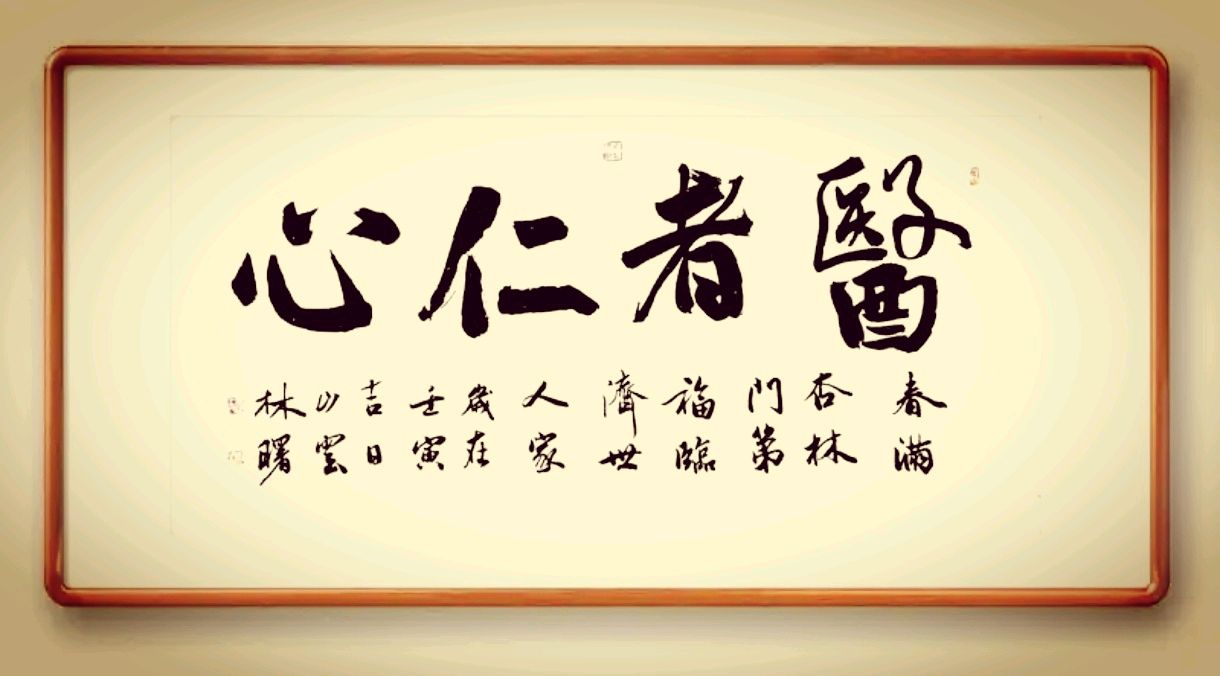 醫者仁心
春滿
杏林
門第
福臨
濟世
人家
歲在
壬寅
吉日
山雲
林曙